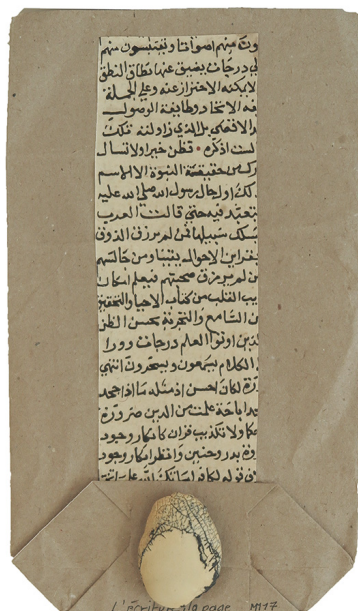 ون منهم اصواتا ويقتبسون منهم
لى درجات يضيق عنها نطاق النطق
لا يمكنه الاحتراز عنه وعلى الجملة
فة الاتحاد وطايفة الوصول
بل الذي زاولته
لست اذكره • فظن خيرا ولا تسال
رك من حقيقة النبوة الا الاسم
اول حال رسول الله صلى الله عليه
تعبد فيه حتى قالت العرب
سلك سبيلها فمن لم يرزق الذوق
بقراين الاحوال يقينا ومن جالسهم
ن لم يرزق صحبتهم فيعلم امكان
يب القلب من كتاب الاحيا والتحقيق
ن التسامع والتجربة بحسن الظن
لذين اوتوا العلم درجات وورا
الكلام يسمعون ويسخرون انتهى
رة لكان احسن اذ مثله ما اذا جحد
اباحة علمت من الدين ضرورة
ولا تكذيب قران كانكار وجود
وة بدر وحنين وانظر انكار وجود
قوله
L'écriture page M117